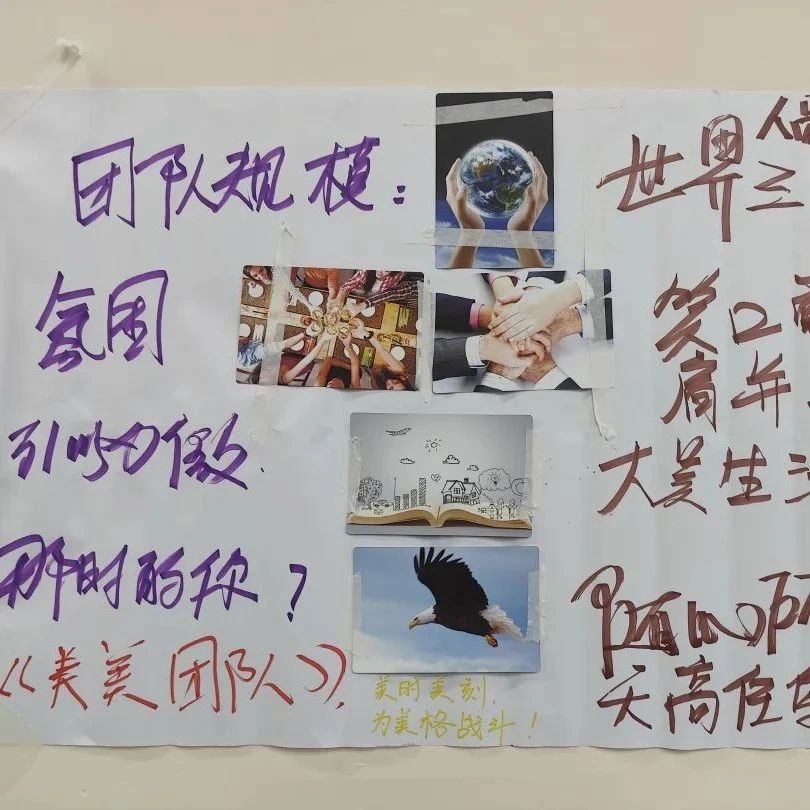 团队规模：
世界
氛围
笑口
肩并
引以为傲.
大美生
那时的你？
随心所
天高任
《美美团队》.
美时美刻，
为美格战斗！